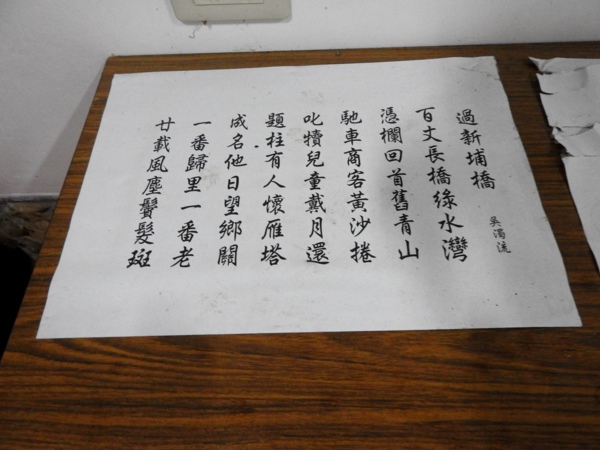 過新埔橋 吳濁流
百丈長橋綠水灣
憑欄回首舊青山
馳車商客黃沙捲
叱犢兒童戴月還
題柱有人懷雁塔
成名他日望鄉關
一番歸里一番老
廿載風塵鬢髮斑